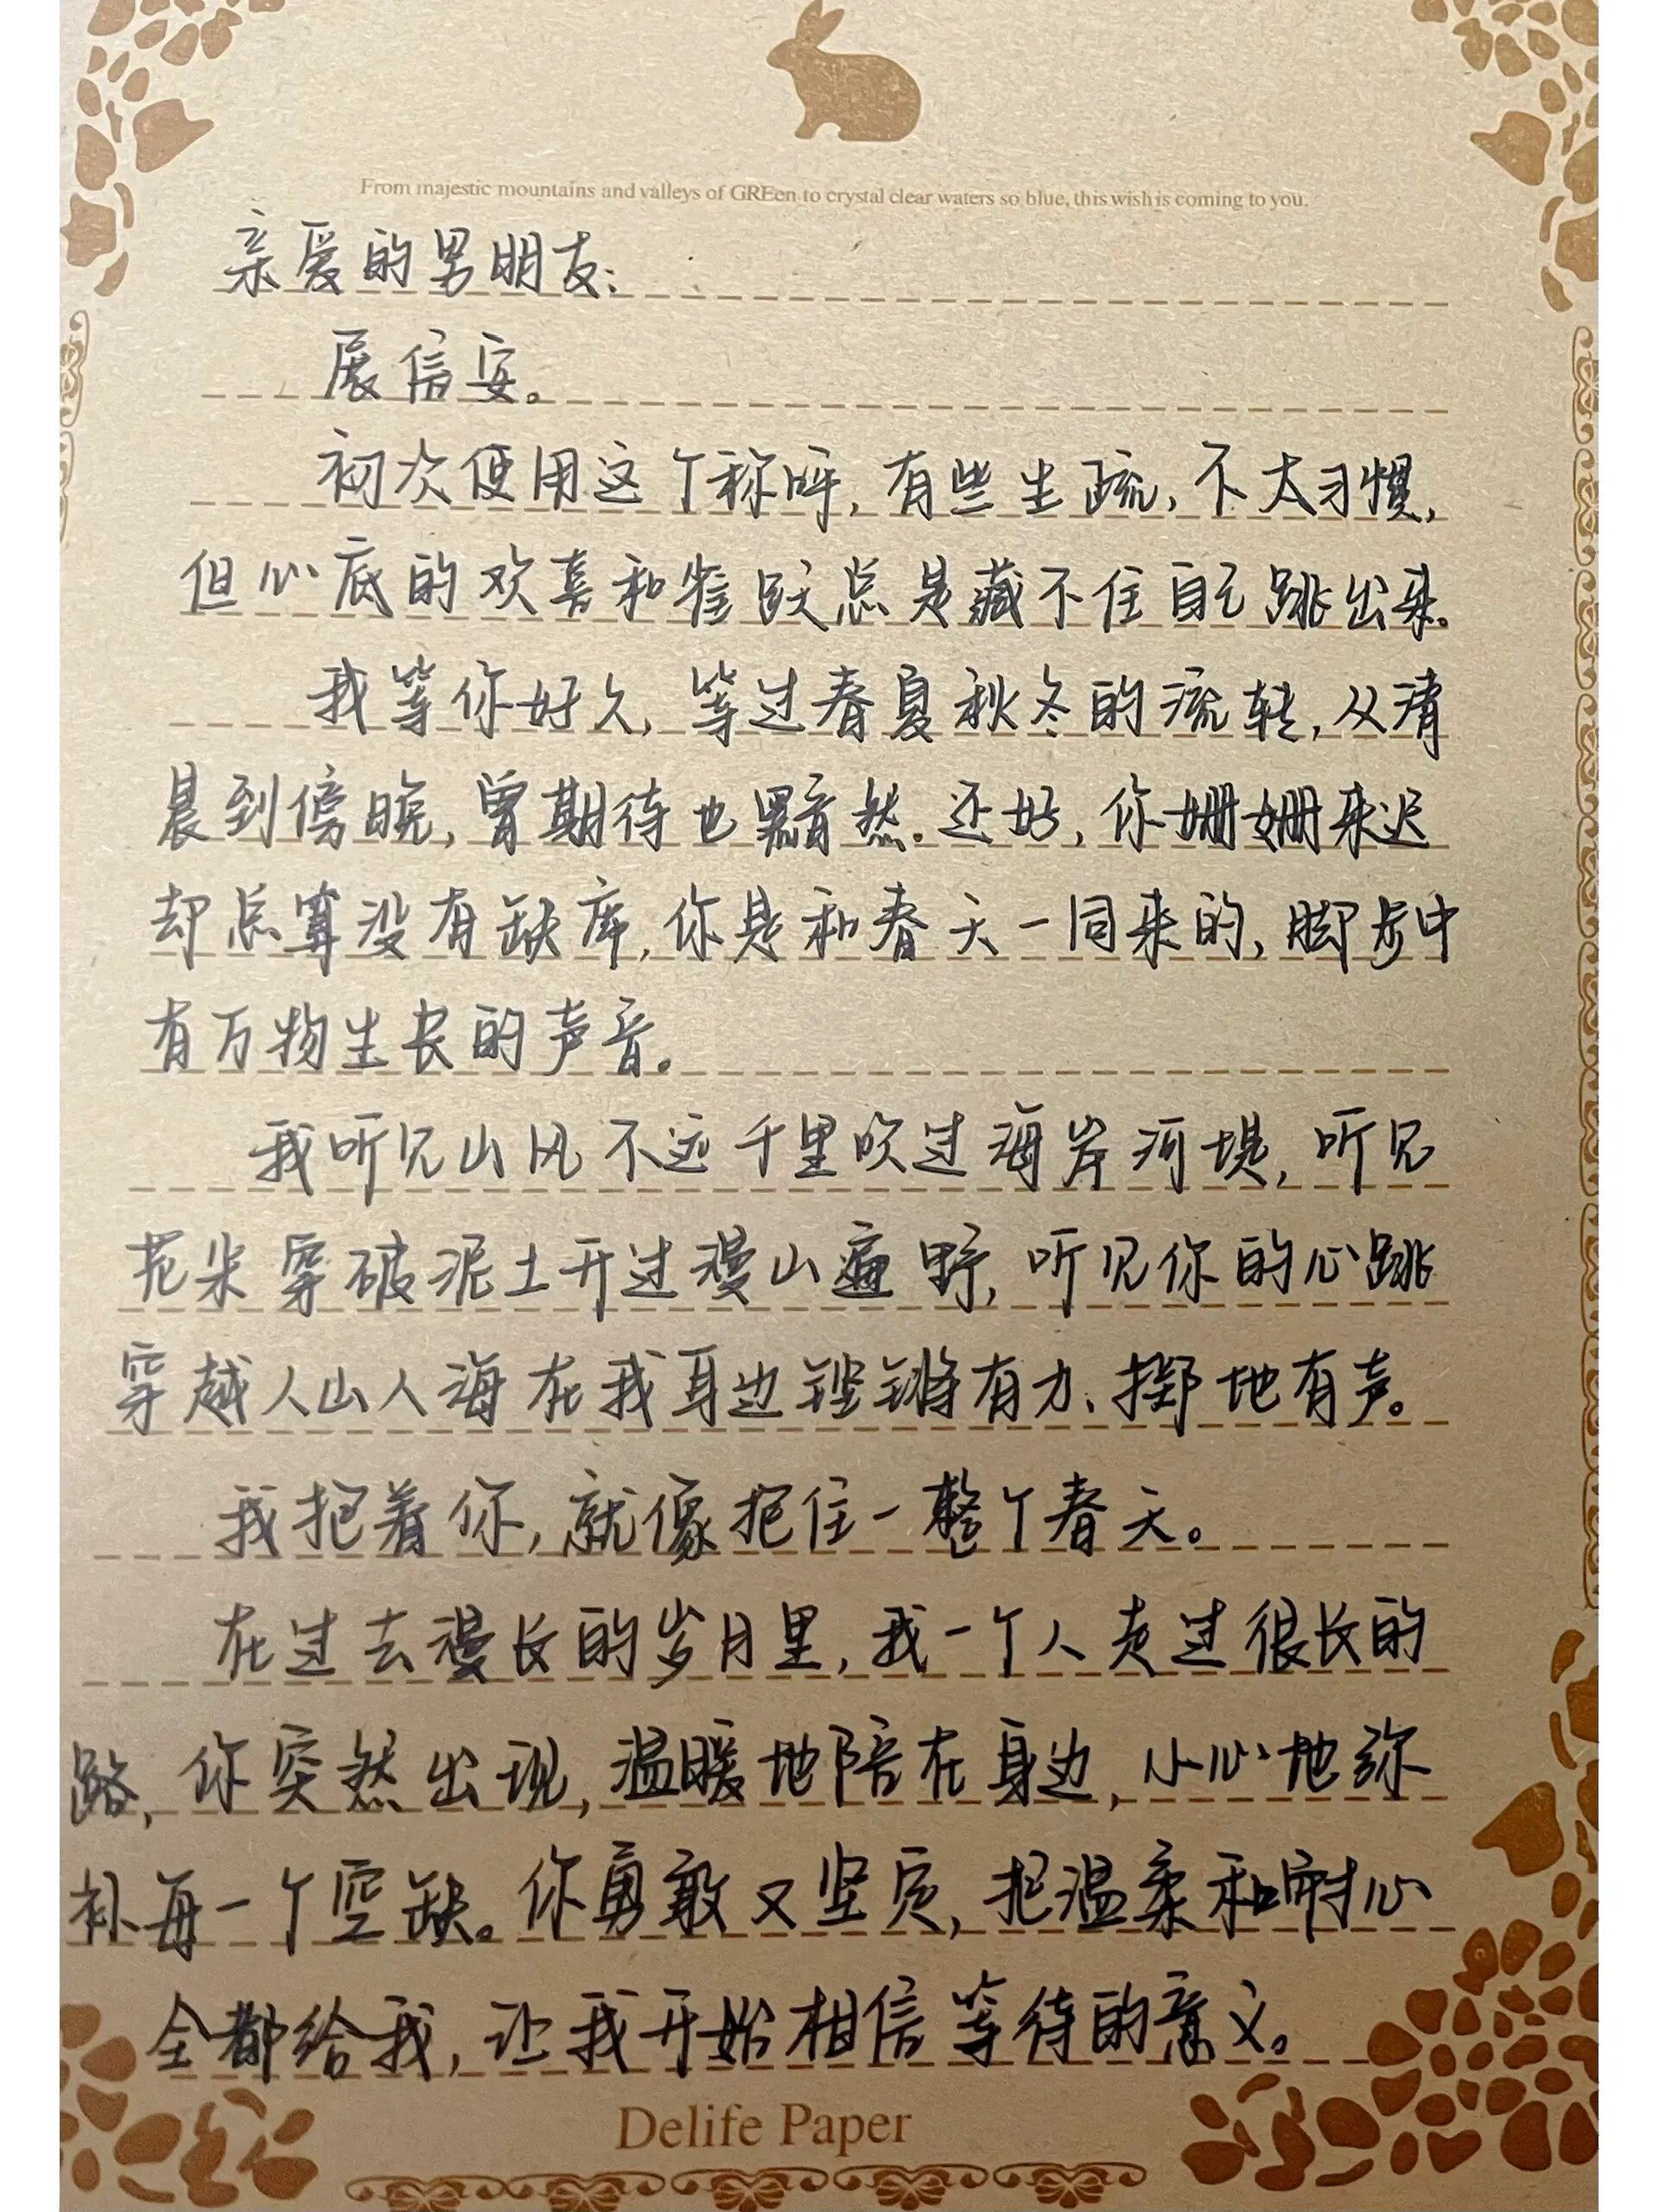 From majestic mountains and valleys of GREen to crystal clear waters so blue, this wish is coming to you.
亲爱的男朋友：
展信安。
初次使用这个称呼，有些生疏，不太习惯，
但心底的欢喜和雀跃总是藏不住自己跳出来。
我等你好久，等过春夏秋冬的流转，从清
晨到傍晚，曾期待也黯然。还好，你姗姗来迟
却总算没有缺席，你是和春天一同来的，脚步中
有万物生长的声音。
我听见山风不远千里吹过海岸河堤，听见
花朵穿破泥土开过漫山遍野，听见你的心跳
穿越人山人海在我身边铿锵有力、掷地有声。
我抱着你，就像抱住一整个春天。
在过去漫长的岁月里，我一个人走过很长的
路，你突然出现，温暖地陪在身边，小心地弥
补每一个空缺。你勇敢又坚定，把温柔和耐心
全都给我，让我开始相信等待的意义。
Delife Paper